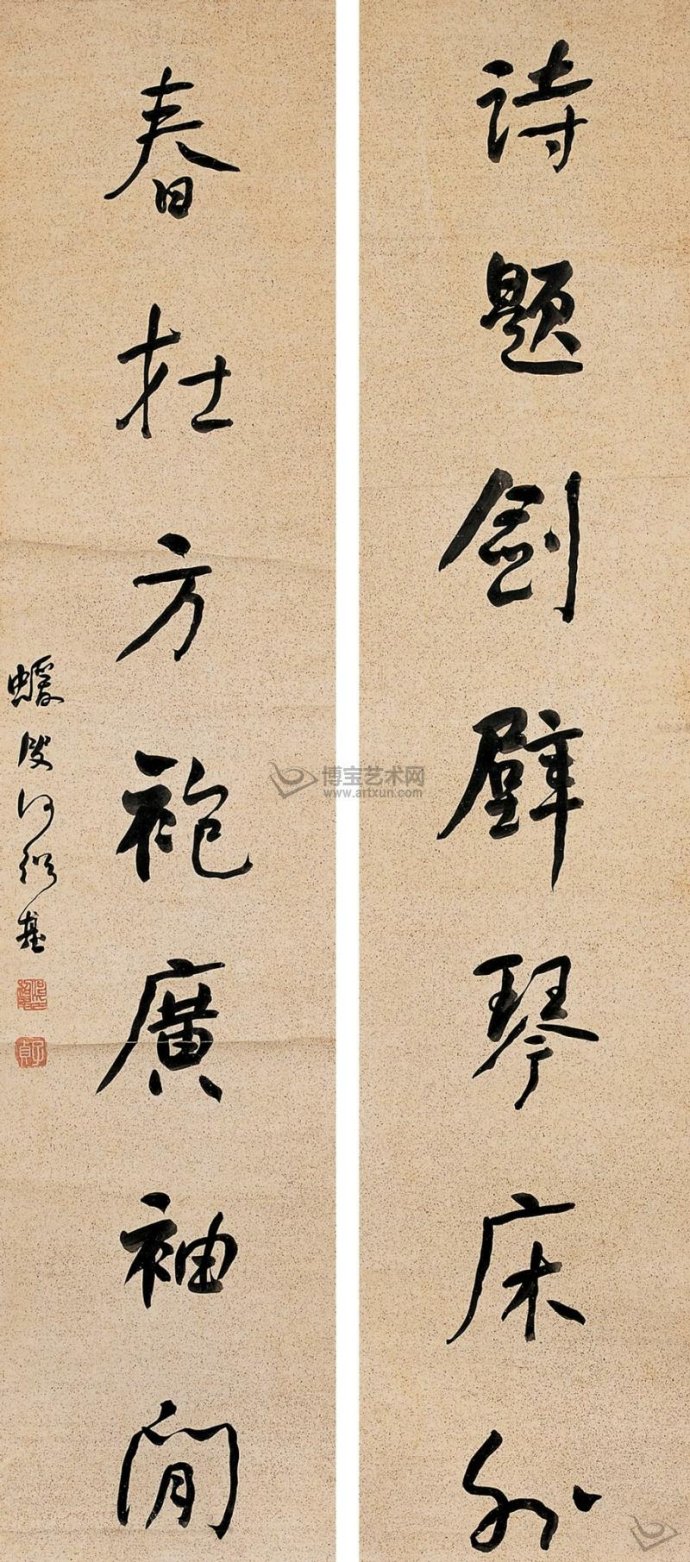 詩題劍壁琴床外
春在方袍廣袖間
蝯叟何紹基
子貞
博宝艺术网
www.artxun.com